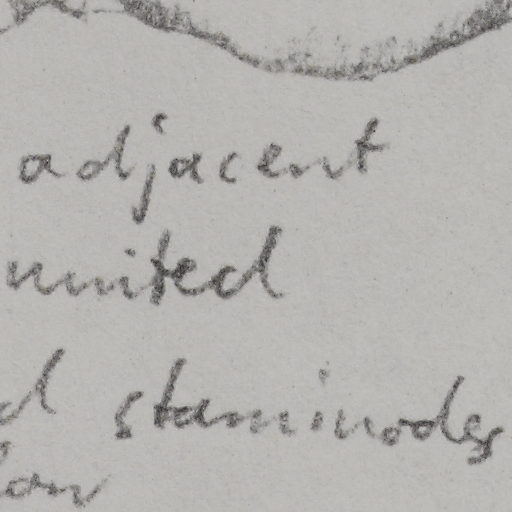 adjacent
united
staminodes